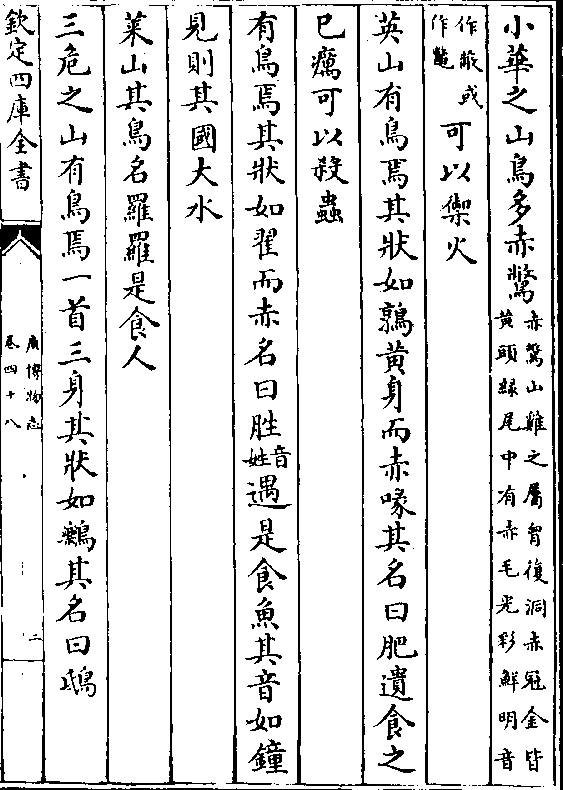 小華之山鳥多赤鷩赤鷩山雞之屬胷復洞赤冠金皆
黄頭緑尾中有赤毛光彩鮮明音
作蔽或
作鼈可以禦火
英山有鳥焉其狀如鶉黄身而赤喙其名曰肥遺食之
已癘可以殺蟲
有鳥焉其狀如翟而赤名曰胜音
姓遇是食魚其音如鐘
見則其國大水
萊山其鳥名羅羅是食人
三危之山有鳥焉一首三身其狀如鸈其名曰鴟
欽定四庫全書
廣博物志
卷四十八
二